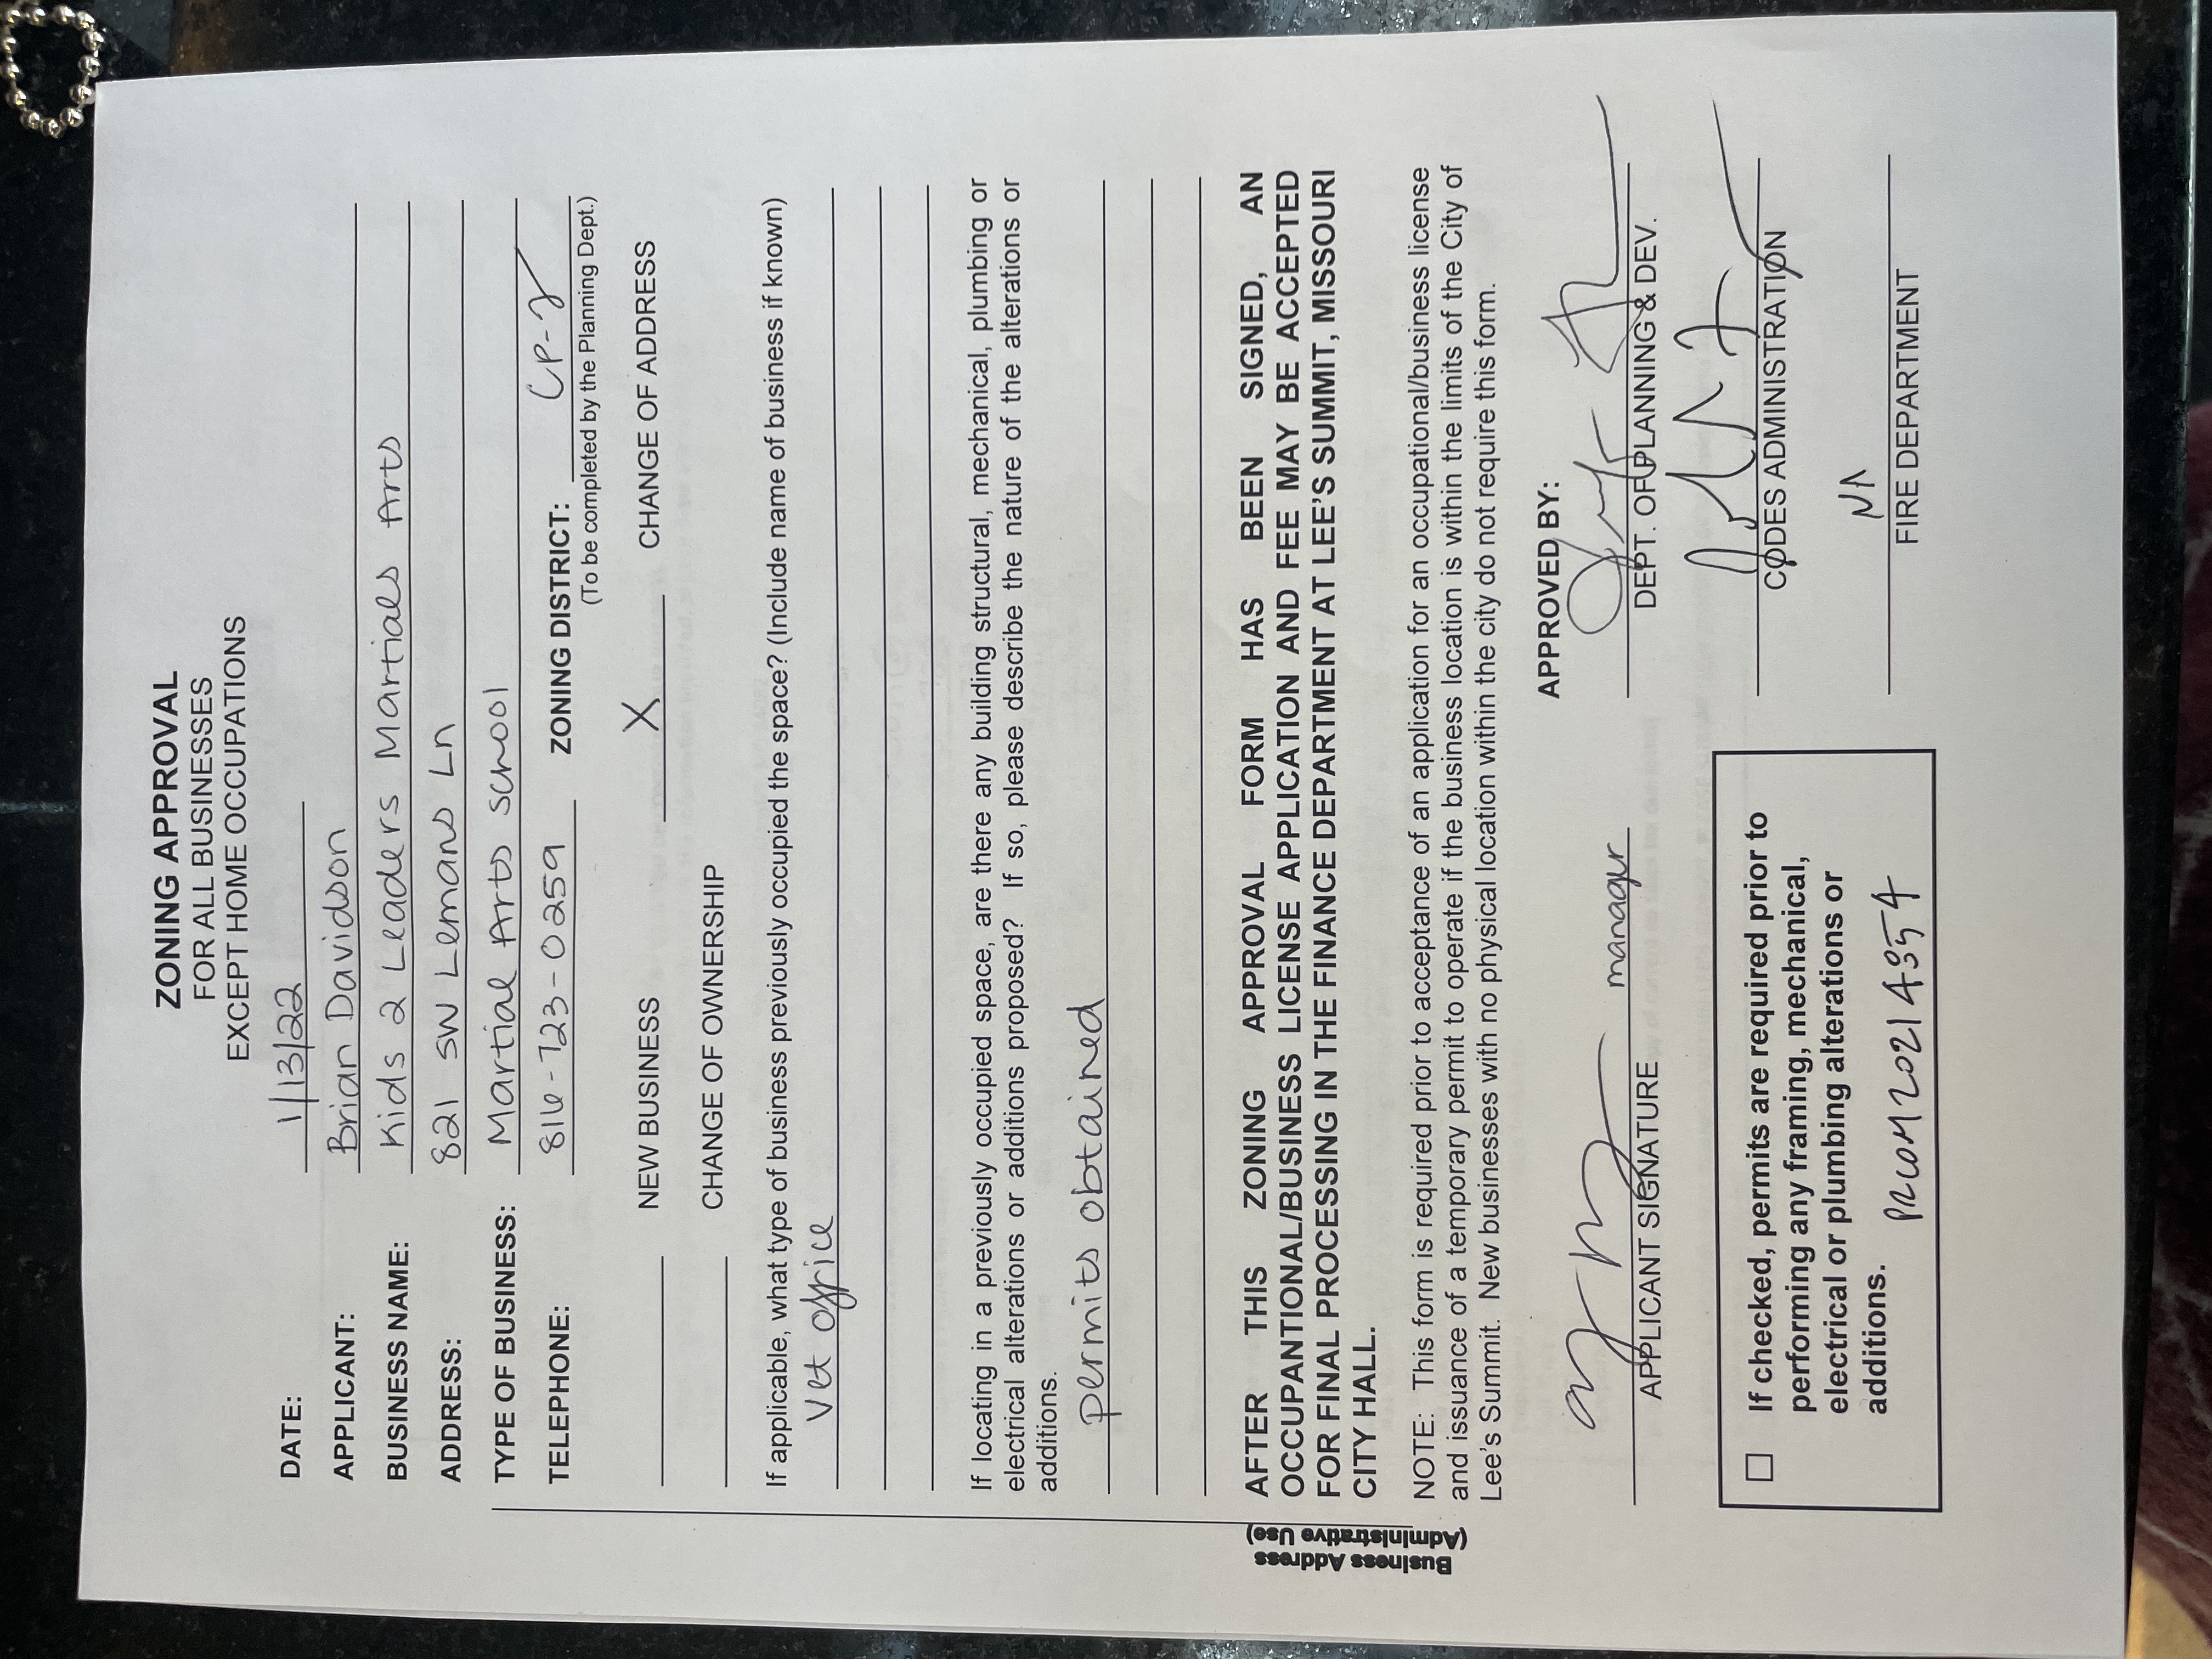 ZONING APPROVAL
FOR ALL BUSINESSES
EXCEPT HOME OCCUPATIONS
DATE: 1/13/22
APPLICANT: Brian Davidson
BUSINESS NAME: Kids 2 Leaders Martials Arts
ADDRESS: 821 SW Lemans Ln
TYPE OF BUSINESS: Martial Arts school
TELEPHONE: 816-723-0259 ZONING DISTRICT: CP-2
(To be completed by the Planning Dept.)
NEW BUSINESS X CHANGE OF ADDRESS
CHANGE OF OWNERSHIP
If applicable, what type of business previously occupied the space? (Include name of business if known)
Vet office
If locating in a previously occupied space, are there any building structural, mechanical, plumbing or
electrical alterations or additions proposed? If so, please describe the nature of the alterations or
additions.
permits obtained
AFTER THIS ZONING APPROVAL FORM HAS BEEN SIGNED, AN
OCCUPANTIONAL/BUSINESS LICENSE APPLICATION AND FEE MAY BE ACCEPTED
FOR FINAL PROCESSING IN THE FINANCE DEPARTMENT AT LEE'S SUMMIT, MISSOURI
CITY HALL.
NOTE: This form is required prior to acceptance of an application for an occupational/business license
and issuance of a temporary permit to operate if the business location is within the limits of the City of
Lee's Summit. New businesses with no physical location within the city do not require this form.
manager
APPLICANT SIGNATURE
APPROVED BY:
DEPT. OF PLANNING & DEV.
CODES ADMINISTRATION
NA
FIRE DEPARTMENT
If checked, permits are required prior to
performing any framing, mechanical,
electrical or plumbing alterations or
additions. PRCOM20214354
Business Address
(Administrative Use)